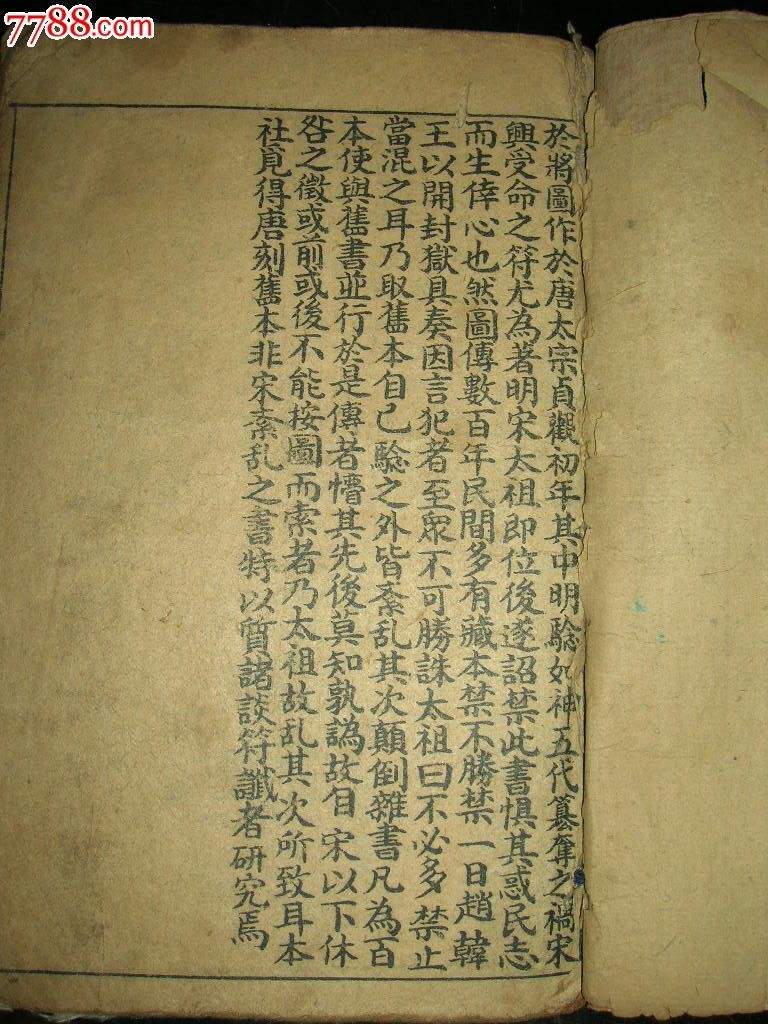 7788.com
於將圖作於唐太宗貞觀初年其中明騐如神五代簒奪之禍宋
興受命之符尤為著明宋太祖即位後遂詔禁此書惧其惑民志
而生倖心也然圖傳數百年民間多有藏本禁不勝禁一日趙韓
王以開封獄具奏因言犯者至眾不可勝誅太祖曰不必多禁止
當混之耳乃取舊本自己騐之外皆紊乱其次顛倒雜書凡為百
本使與舊書並行於是傳者懵其先後莫知孰譌故自宋以下休
咎之徵或前或後不能按圖而索者乃太祖故乱其次所致耳本
社覓得唐刻舊本非宋紊乱之書特以質諸談符讖者研究焉